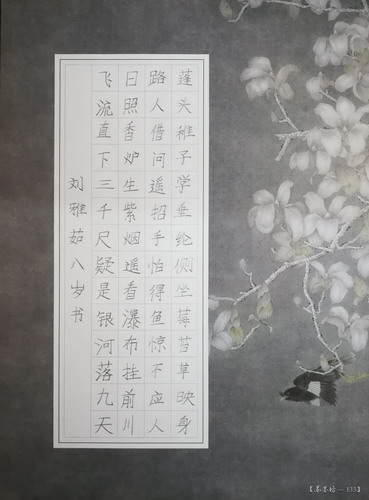 蓬头稚子学垂纶侧坐莓苔草映身
路人借问遥招手怕得鱼惊不应人
日照香炉生紫烟遥看瀑布挂前川
飞流直下三千尺疑是银河落九天
刘雅茹八岁书
133